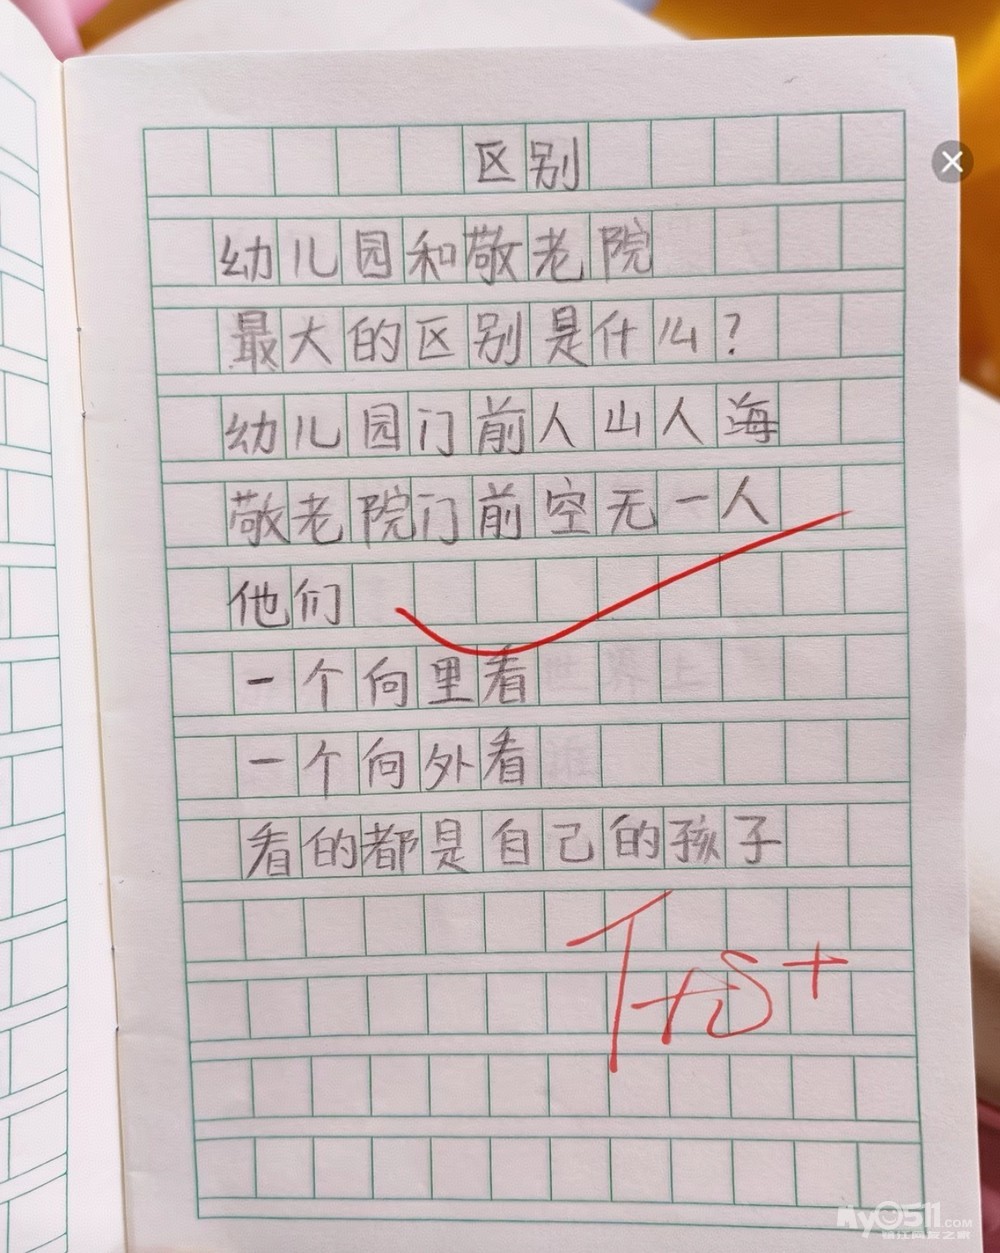 区别
幼儿园和敬老院
最大的区别是什么?
幼儿园门前人山人海
敬老院门前空无一人
他们
一个向里看
一个向外看
看的都是自己的孩子
My0511.COM